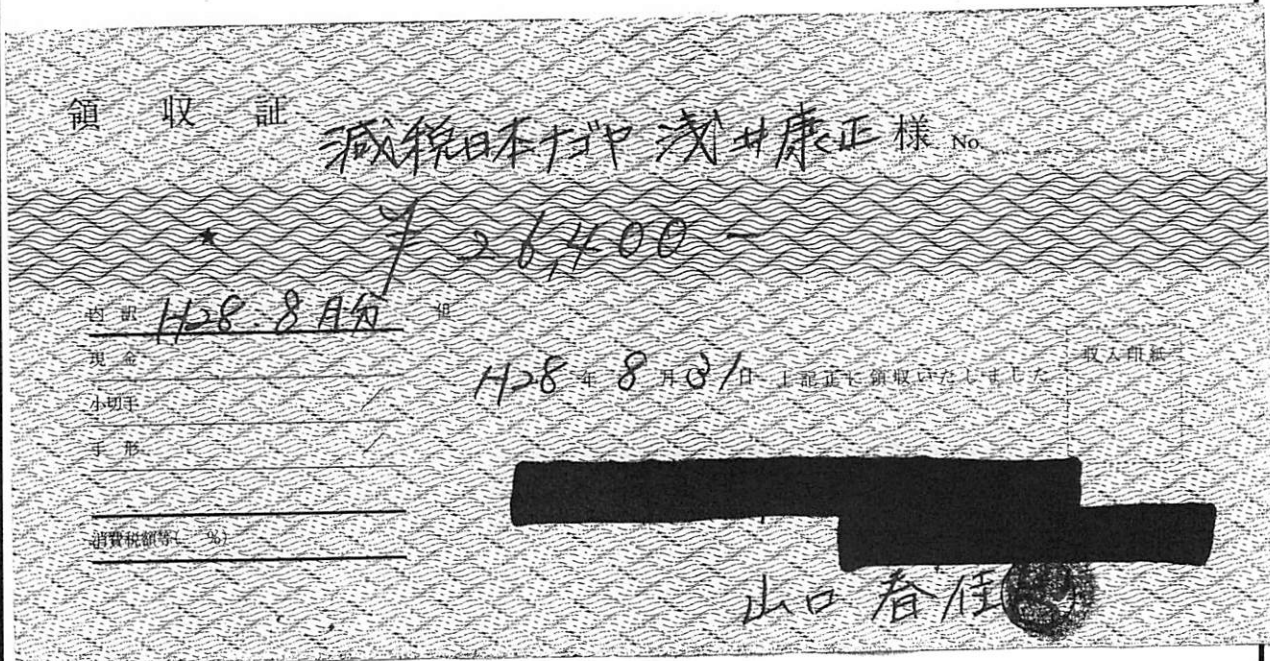 領収証
減税日本ナゴヤ 浅井康正 様 No.
★ ¥26,400-
内訳 H28.8月分
但
現金
小切手
手形
消費税額等( %)
H28年8月31日 上記正に領収いたしました
収入印紙
山口春佳